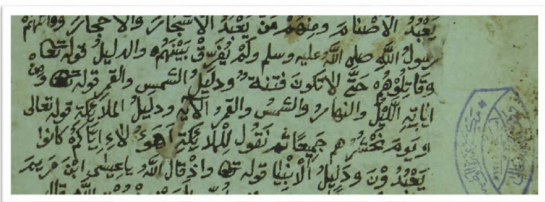 يعبد الاصنام ومنهم من يعبد الاشجار والاحجار وقاتلهم
رسول الله صلى الله عليه وسلم ولم يفرق بينهم والدليل قوله تعالى
وقاتلوهم حتى لا تكون فتنة ودليل الشمس والقمر قوله تعالى ومن
اياته الليل والنهار والشمس والقمر الاية ودليل الملائكة قوله تعالى
ويوم نحشرهم جميعا ثم يقول للملائكة اهؤلاء اياكم كانوا
يعبدون ودليل الانبيا قوله تعالى واذ قال الله يا عيسى ابن مريم